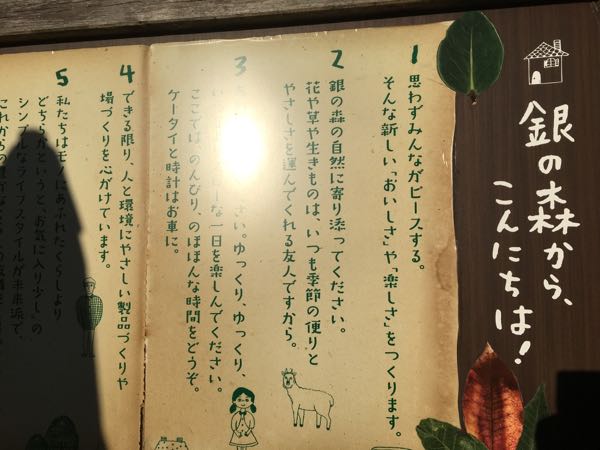 銀の森から、
こんにちは!
1
思わずみんながピースする。
そんな新しい「おいしさ」や「楽しさ」をつくります。
2
銀の森の自然に寄り添ってください。
花や草や生きものは、いつも季節の便りと
やさしさを運んでくれる友人ですから。
3
さい。ゆっくり、ゆっくり、
な一日を楽しんでください。
ここでは、のんびり、のほほんな時間をどうぞ。
ケータイと時計はお車に。
4
できる限り、人と環境にやさしい製品づくりや
場づくりを心がけています。
5
私たちはモノにあふれたくらしより
どちらかというと、お気に入り少し」の
シンプルなライフスタイルが未来派で、
これからの